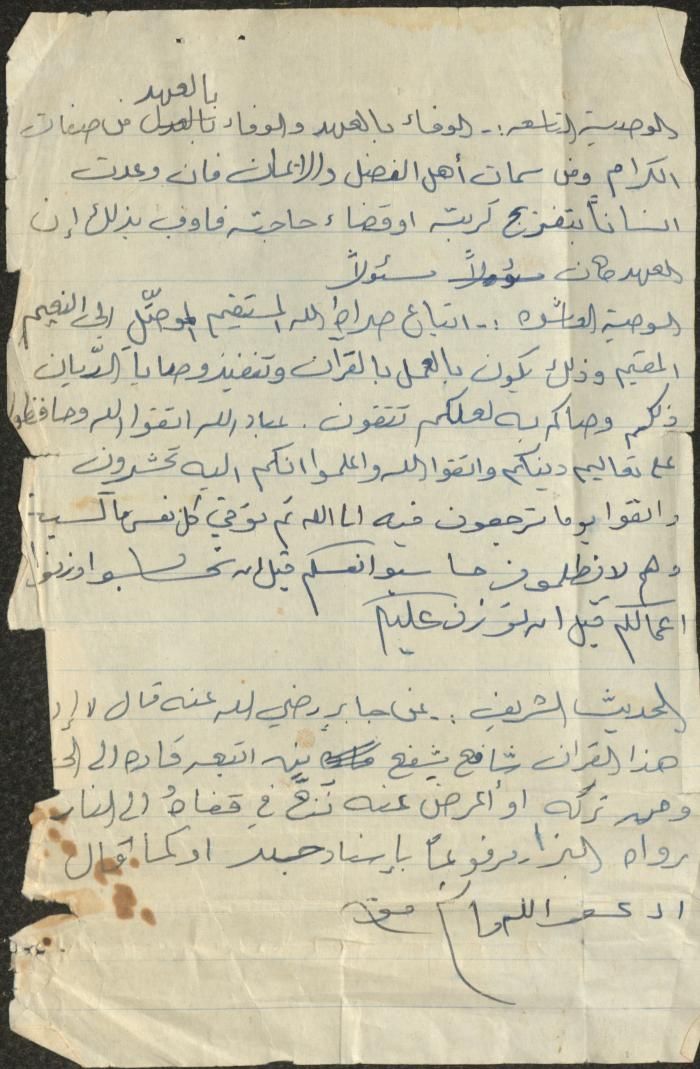 بالعهد
الوصية التاسعه :- الوفاء بالعهد والوفاء بالعدل من صفات
الكرام ومن سمات أهل الفضل والإيمان فان وعدت
انساناً بتفريج كربته او قضاء حاجته فاوف بذلك إن
العهد كان مسؤولاً مسئولاً
الوصية العاشره :- اتباع صراط الله المستقيم الموصّل إلى النعيم
المقيم وذلك يكون بالعمل بالقرآن وتنفيذ وصايا الدّيان
ذلكم وصاكم به لعلكم تتقون . عباد الله اتقوا الله وحافظوا
على تعاليم دينكم واتقوا الله واعلموا انكم اليه تحشرون
واتقوا يوما ترجعون فيه الى الله ثم توفى كل نفس ما كسبت
وهم لا يظلمون حاسبوا انفسكم قبل ان تحاسبوا وزنوا
اعمالكم قبل ان توزن عليكم
الحديث الشريف :- عن جابر رضي الله عنه قال
هذا القران شافع مشفع من اتبعه قاده الى
ومن تركه او أعرض عنه زخّ في قفاهُ الى النار
رواه البزار مرفوعاً بإسناد جيد او كما قال
ادعو الله